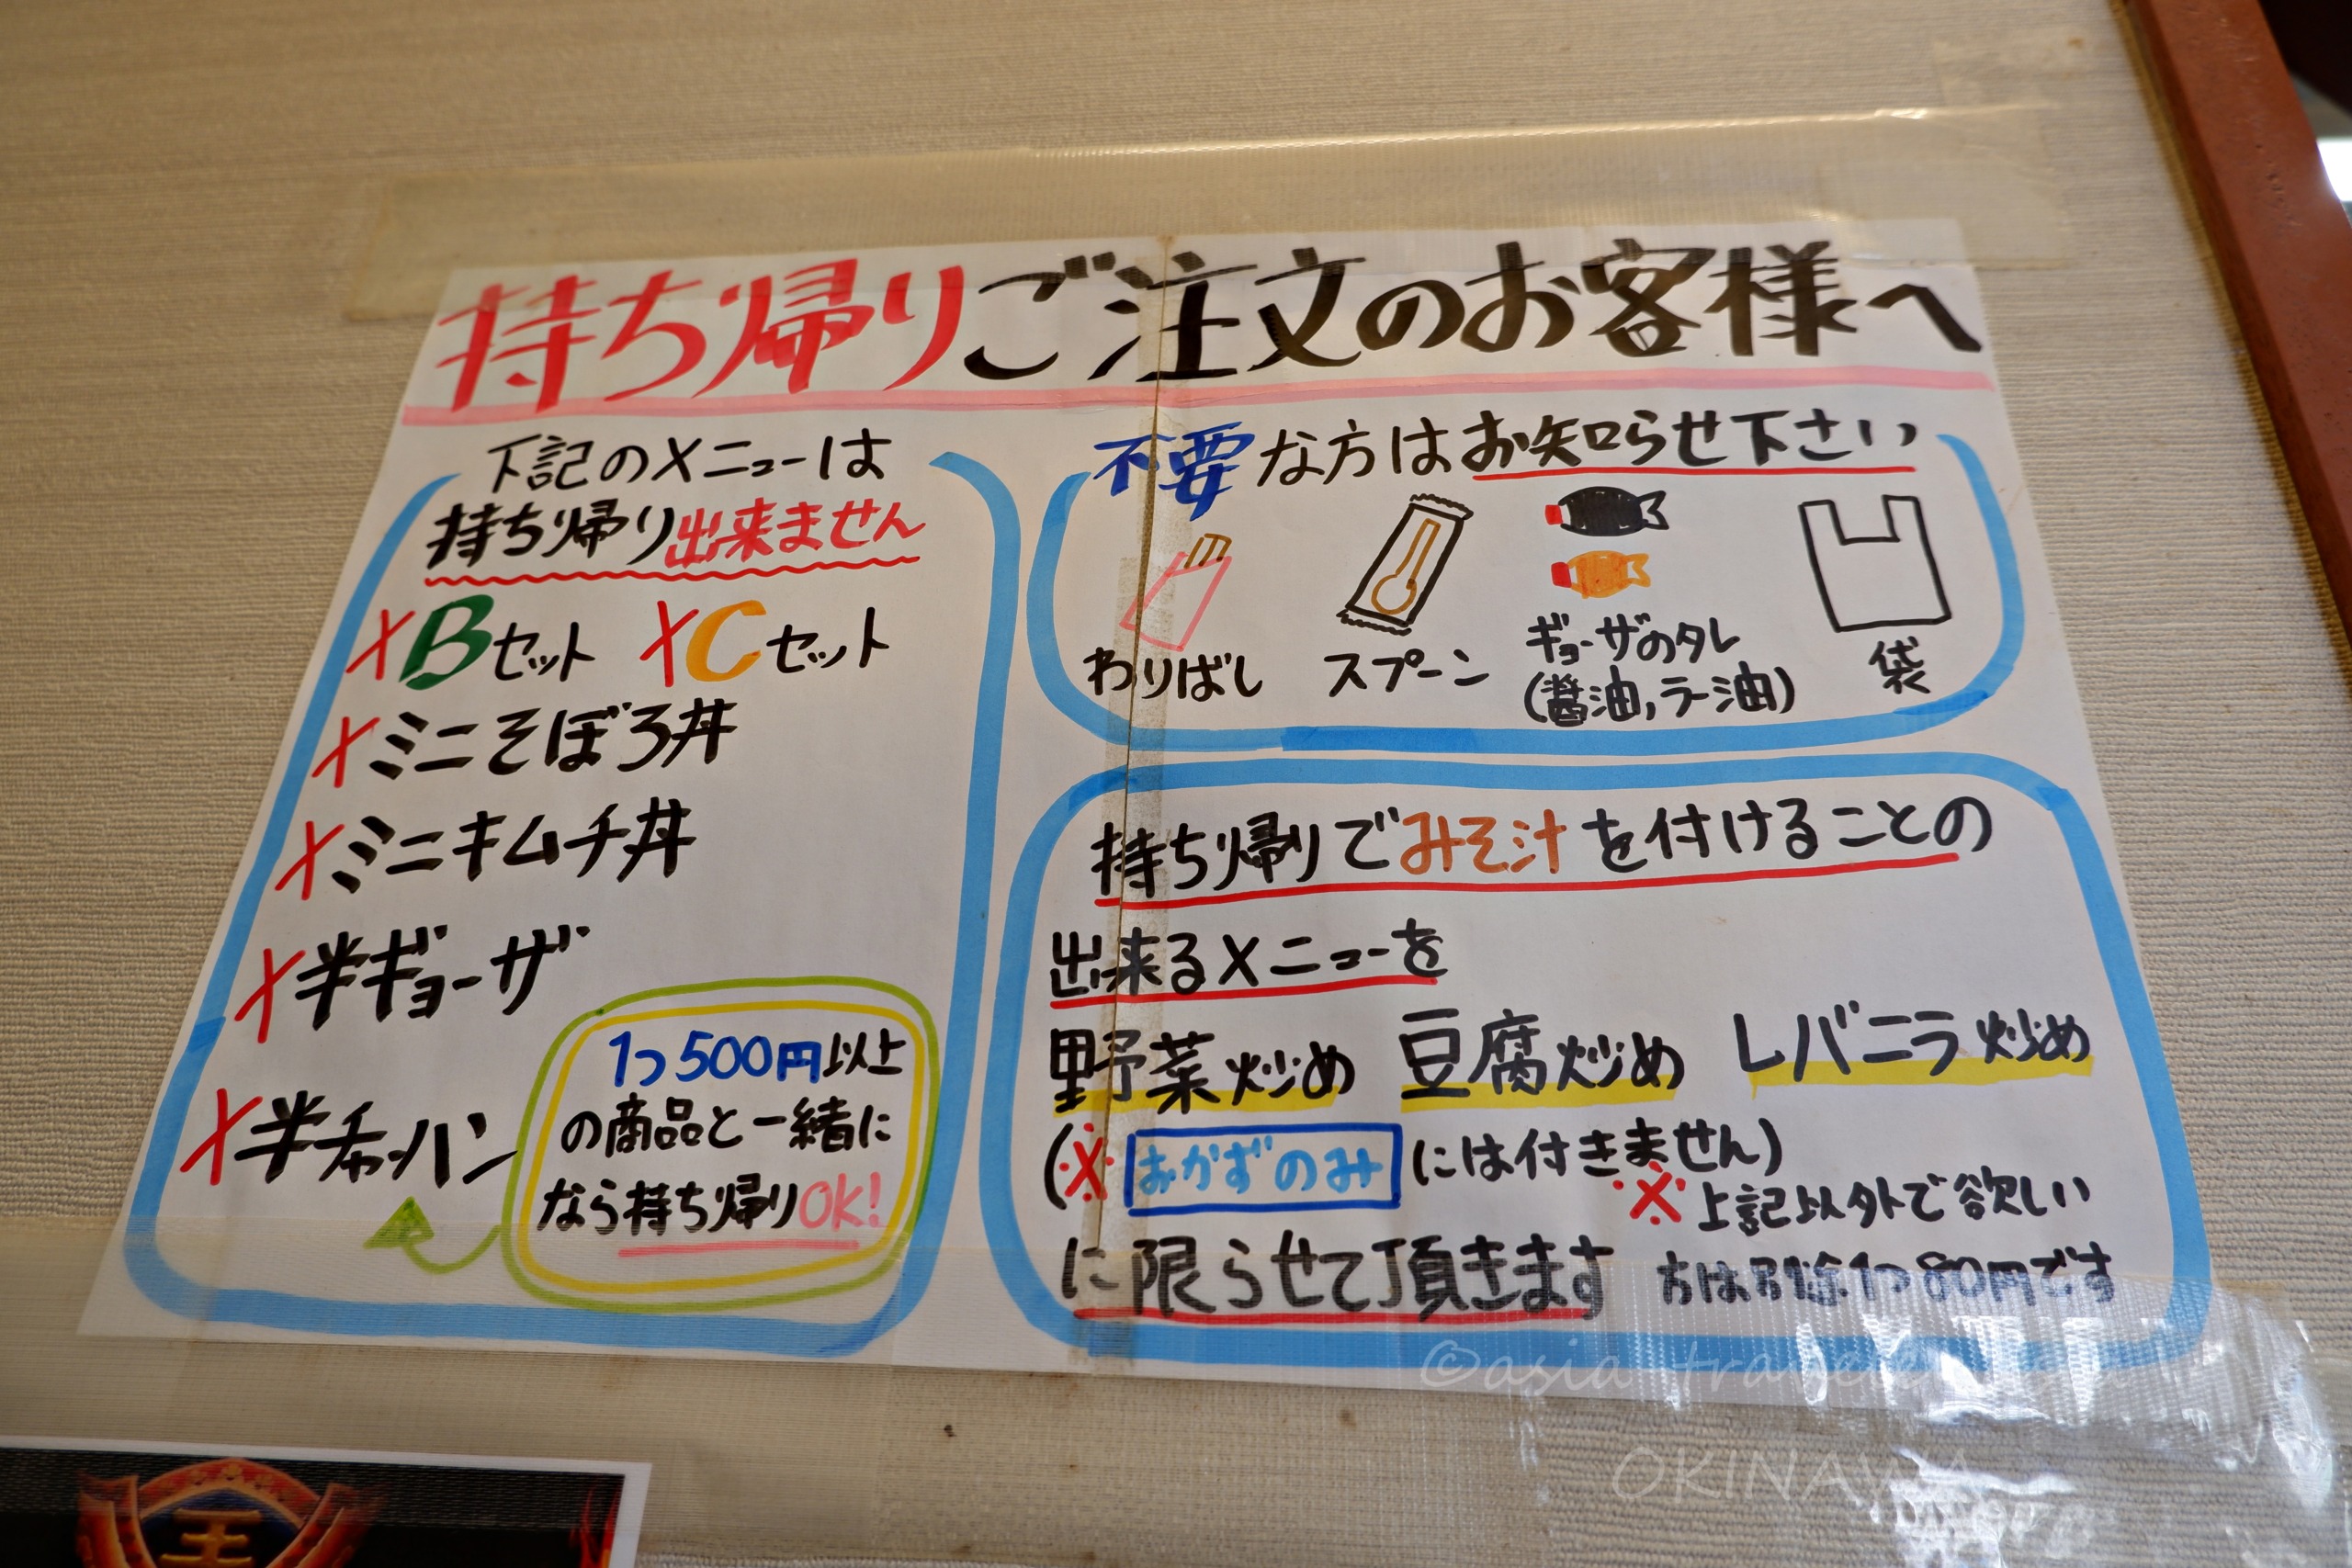 持ち帰りご注文のお客様へ
下記のメニューは
持ち帰り出来ません
×Bセット ×Cセット
×ミニそぼろ丼
×ミニキムチ丼
×半ギョーザ
×半チャーハン
1つ500円以上
の商品と一緒に
なら持ち帰りOK!
不要な方はお知らせ下さい
わりばし
スプーン
ギョーザのタレ
(醤油,ラー油)
袋
持ち帰りでみそ汁を付けることの
出来るメニューを
野菜炒め 豆腐炒め レバニラ炒め
(※おかずのみには付きません)
に限らせて頂きます
※上記以外で欲しい
方は別途1つ80円です
©asia
OKINAWA
王